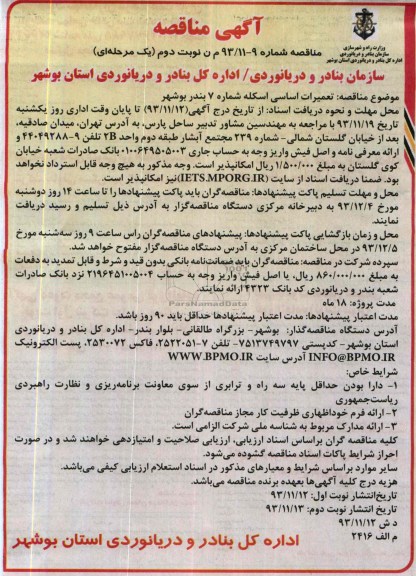 آگهی مناقصه
وزارت راه و شهرسازی
سازمان بنادر و دریانوردی
اداره کل بنادر و دریانوردی استان بوشهر
مناقصه شماره ۹-۹۳/۱۱ م ن نوبت دوم (یک مرحله‌ای)
سازمان بنادر و دریانوردی/ اداره کل بنادر و دریانوردی استان بوشهر
موضوع مناقصه: تعمیرات اساسی اسکله شماره ۷ بندر بوشهر
محل مهلت و نحوه دریافت اسناد: از تاریخ درج آگهی (۹۳/۱۱/۱۲) تا پایان وقت اداری روز یکشنبه
تاریخ ۹۳/۱۱/۱۹ با مراجعه به مهندسین مشاور تدبیر ساحل پارس، به آدرس تهران، میدان صادقیه،
بعد از خیابان گلستان شمالی- شماره ۲۳۹ مجتمع آبشار طبقه دوم واحد 2B تلفن ۹-۴۴۰۴۹۲۸۸ و
ارائه معرفی نامه و اصل فیش واریز وجه به حساب جاری ۰۱۰۰۶۴۹۵۰۵۰۰۳ بانک صادرات شعبه خیابان
کوی گلستان به مبلغ ۱/۵۰۰/۰۰۰ ریال امکانپذیر است. وجه مذکور به هیچ وجه قابل استرداد نخواهد
بود. ضمنا دریافت اسناد از سایت (IETS.MPORG.IR) نیز امکانپذیر است.
محل و مهلت تسلیم پاکت پیشنهادها: مناقصه‌گران باید پاکت پیشنهادها را تا ساعت ۱۴ روز دوشنبه
مورخ ۹۳/۱۲/۴ به دبیرخانه مرکزی دستگاه مناقصه‌گزار به آدرس ذیل تسلیم و رسید دریافت
نمایند.
محل و زمان بازگشایی پاکت پیشنهادها: پیشنهادهای مناقصه‌گران راس ساعت ۹ روز سه‌شنبه مورخ
۹۳/۱۲/۵ در محل ساختمان مرکزی به آدرس دستگاه مناقصه‌گزار مفتوح خواهد شد.
سپرده شرکت در مناقصه: مناقصه‌گران باید ضمانت‌نامه بانکی بدون قید و شرط و قابل تمدید به دفعات
به مبلغ ۸۶۰/۰۰۰/۰۰۰ ریال، یا اصل فیش واریز وجه به حساب ۲۱۹۶۴۵۱۰۰۵۰۰۴ نزد بانک صادرات
شعبه بندر و دریانوردی کد بانک ۴۳۲۲ ارائه نمایند.
مدت پروژه: ۱۸ ماه
مدت اعتبار پیشنهادها: مدت اعتبار پیشنهادها حداقل باید ۹۰ روز باشد.
آدرس دستگاه مناقصه‌گذار: بوشهر- بزرگراه طالقانی- بلوار بندر- اداره کل بنادر و دریانوردی
استان بوشهر- کدپستی ۷۵۱۳۷۴۹۷۹۷- تلفن ۷-۲۵۲۲۰۵۱، فاکس ۲۵۳۰۰۷۲، پست الکترونیک
INFO@BPMO.IR آدرس سایت WWW.BPMO.IR
شرایط خاص:
۱- دارا بودن حداقل پایه سه راه و ترابری از سوی معاونت برنامه‌ریزی و نظارت راهبردی
ریاست‌جمهوری
۲- ارائه فرم خوداظهاری ظرفیت کار مجاز مناقصه‌گران
۳- ارائه مدارک مربوط به شناسه ملی شرکت الزامی است.
کلیه مناقصه گران براساس اسناد ارزیابی، ارزیابی صلاحیت و امتیازدهی خواهند شد و در صورت
احراز شرایط پاکات اسناد مناقصه گشوده می‌شود.
سایر موارد براساس شرایط و معیارهای مذکور در اسناد استعلام ارزیابی کیفی می‌باشد.
هزینه درج کلیه آگهی‌ها بعهده برنده مناقصه می‌باشد.
تاریخ‌انتشار نوبت اول: ۹۳/۱۱/۱۲
تاریخ انتشار نوبت دوم: ۹۳/۱۱/۱۳
د ش ۹۳/۱۱/۱۲
م الف ۲۴۱۶
اداره کل بنادر و دریانوردی استان بوشهر
ParsNamadData